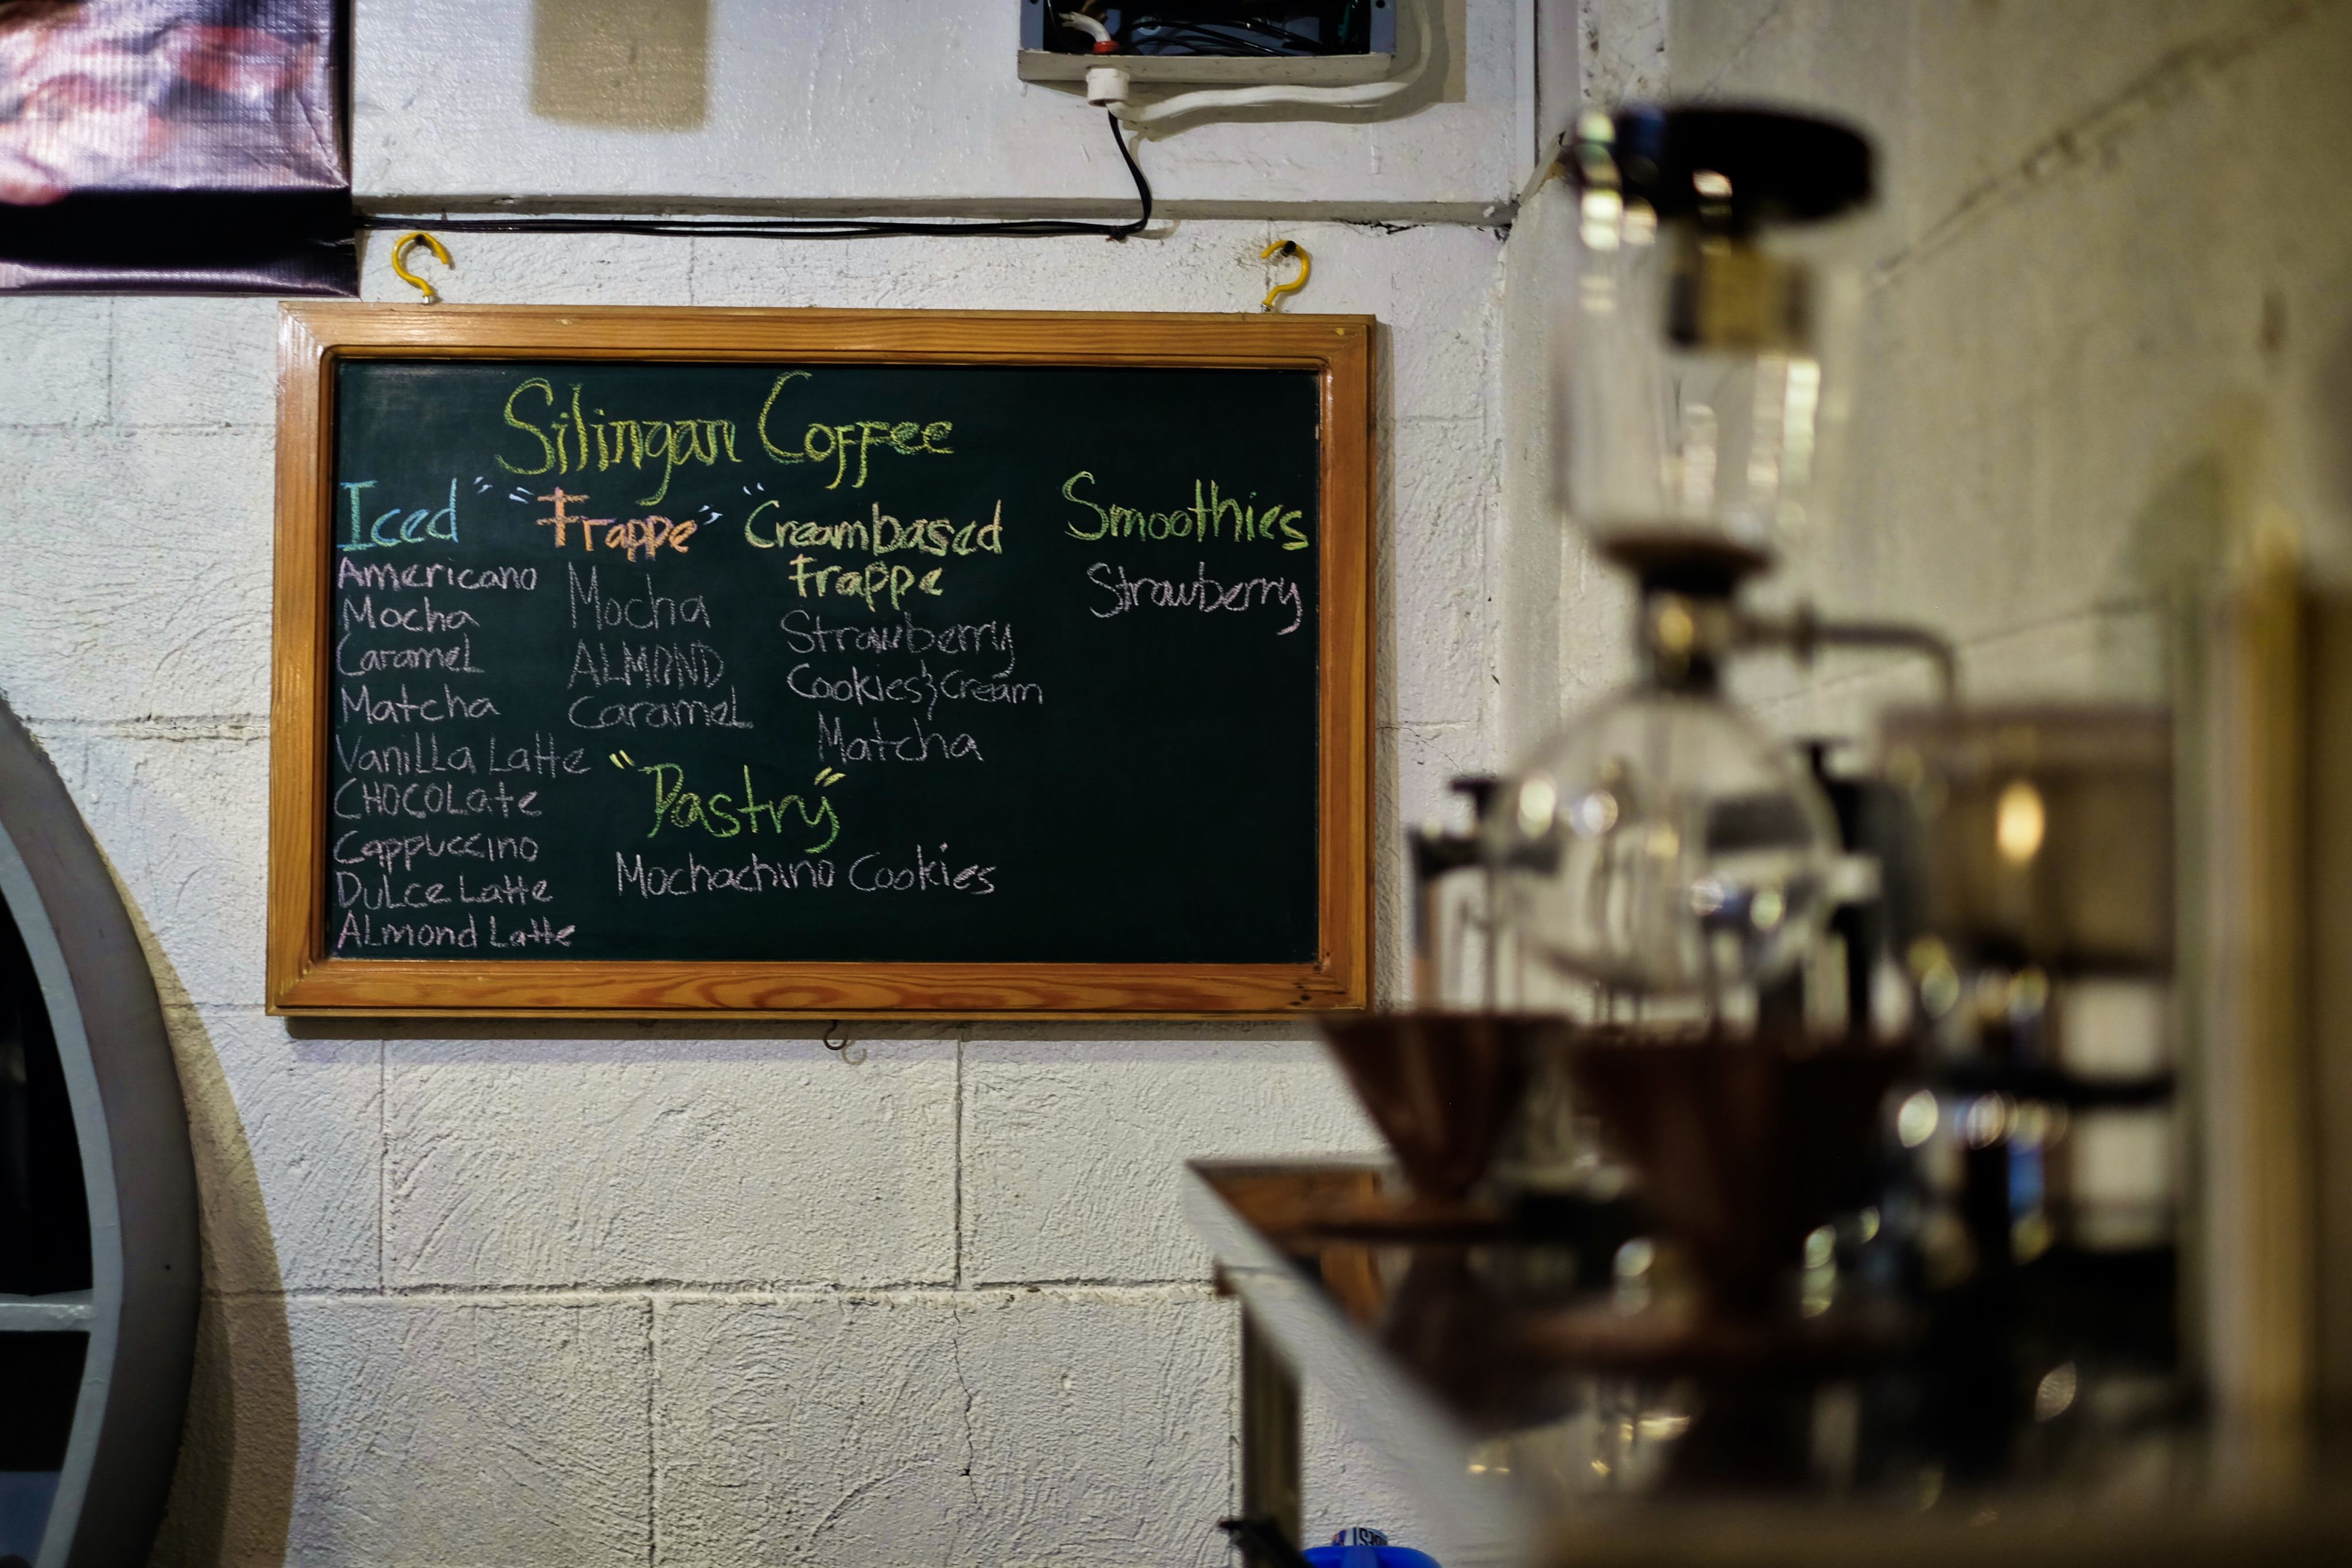 Silingan Coffee
Iced"
Americano
Mocha
Caramel
Matcha
Vanilla Latte
CHOCOLate
Cappuccino
DuLce Latte
ALmond Latte
"Frappe"
Mocha
ALMOND
Caramel
"Creambased
Frappe
Strawberry
Cookies & Cream
Matcha
Smoothies
Strawberry
"Pastry"
Mochachino Cookies